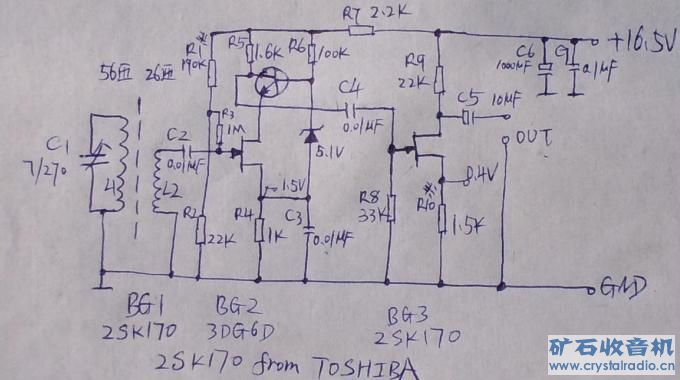 R7 2.2K
+16.5V
R1* 190K
R5 1.6K
R6 100K
R9 22K
C6 1000MF
C7 0.1MF
56匝 26匝
C4 0.01MF
C5 10MF
C1 7/270
C2 0.01MF
R3 1M
5.1V
OUT
L1
L2
1.5V
R8 33K
0.4V
R2 22K
R4 1K
C3 0.01MF
R10* 1.5K
GND
BG1 BG2 BG3
2SK170 3DG6D 2SK170
2SK170 from TOSHIBA
矿石收音机
www.crystalradio.cn